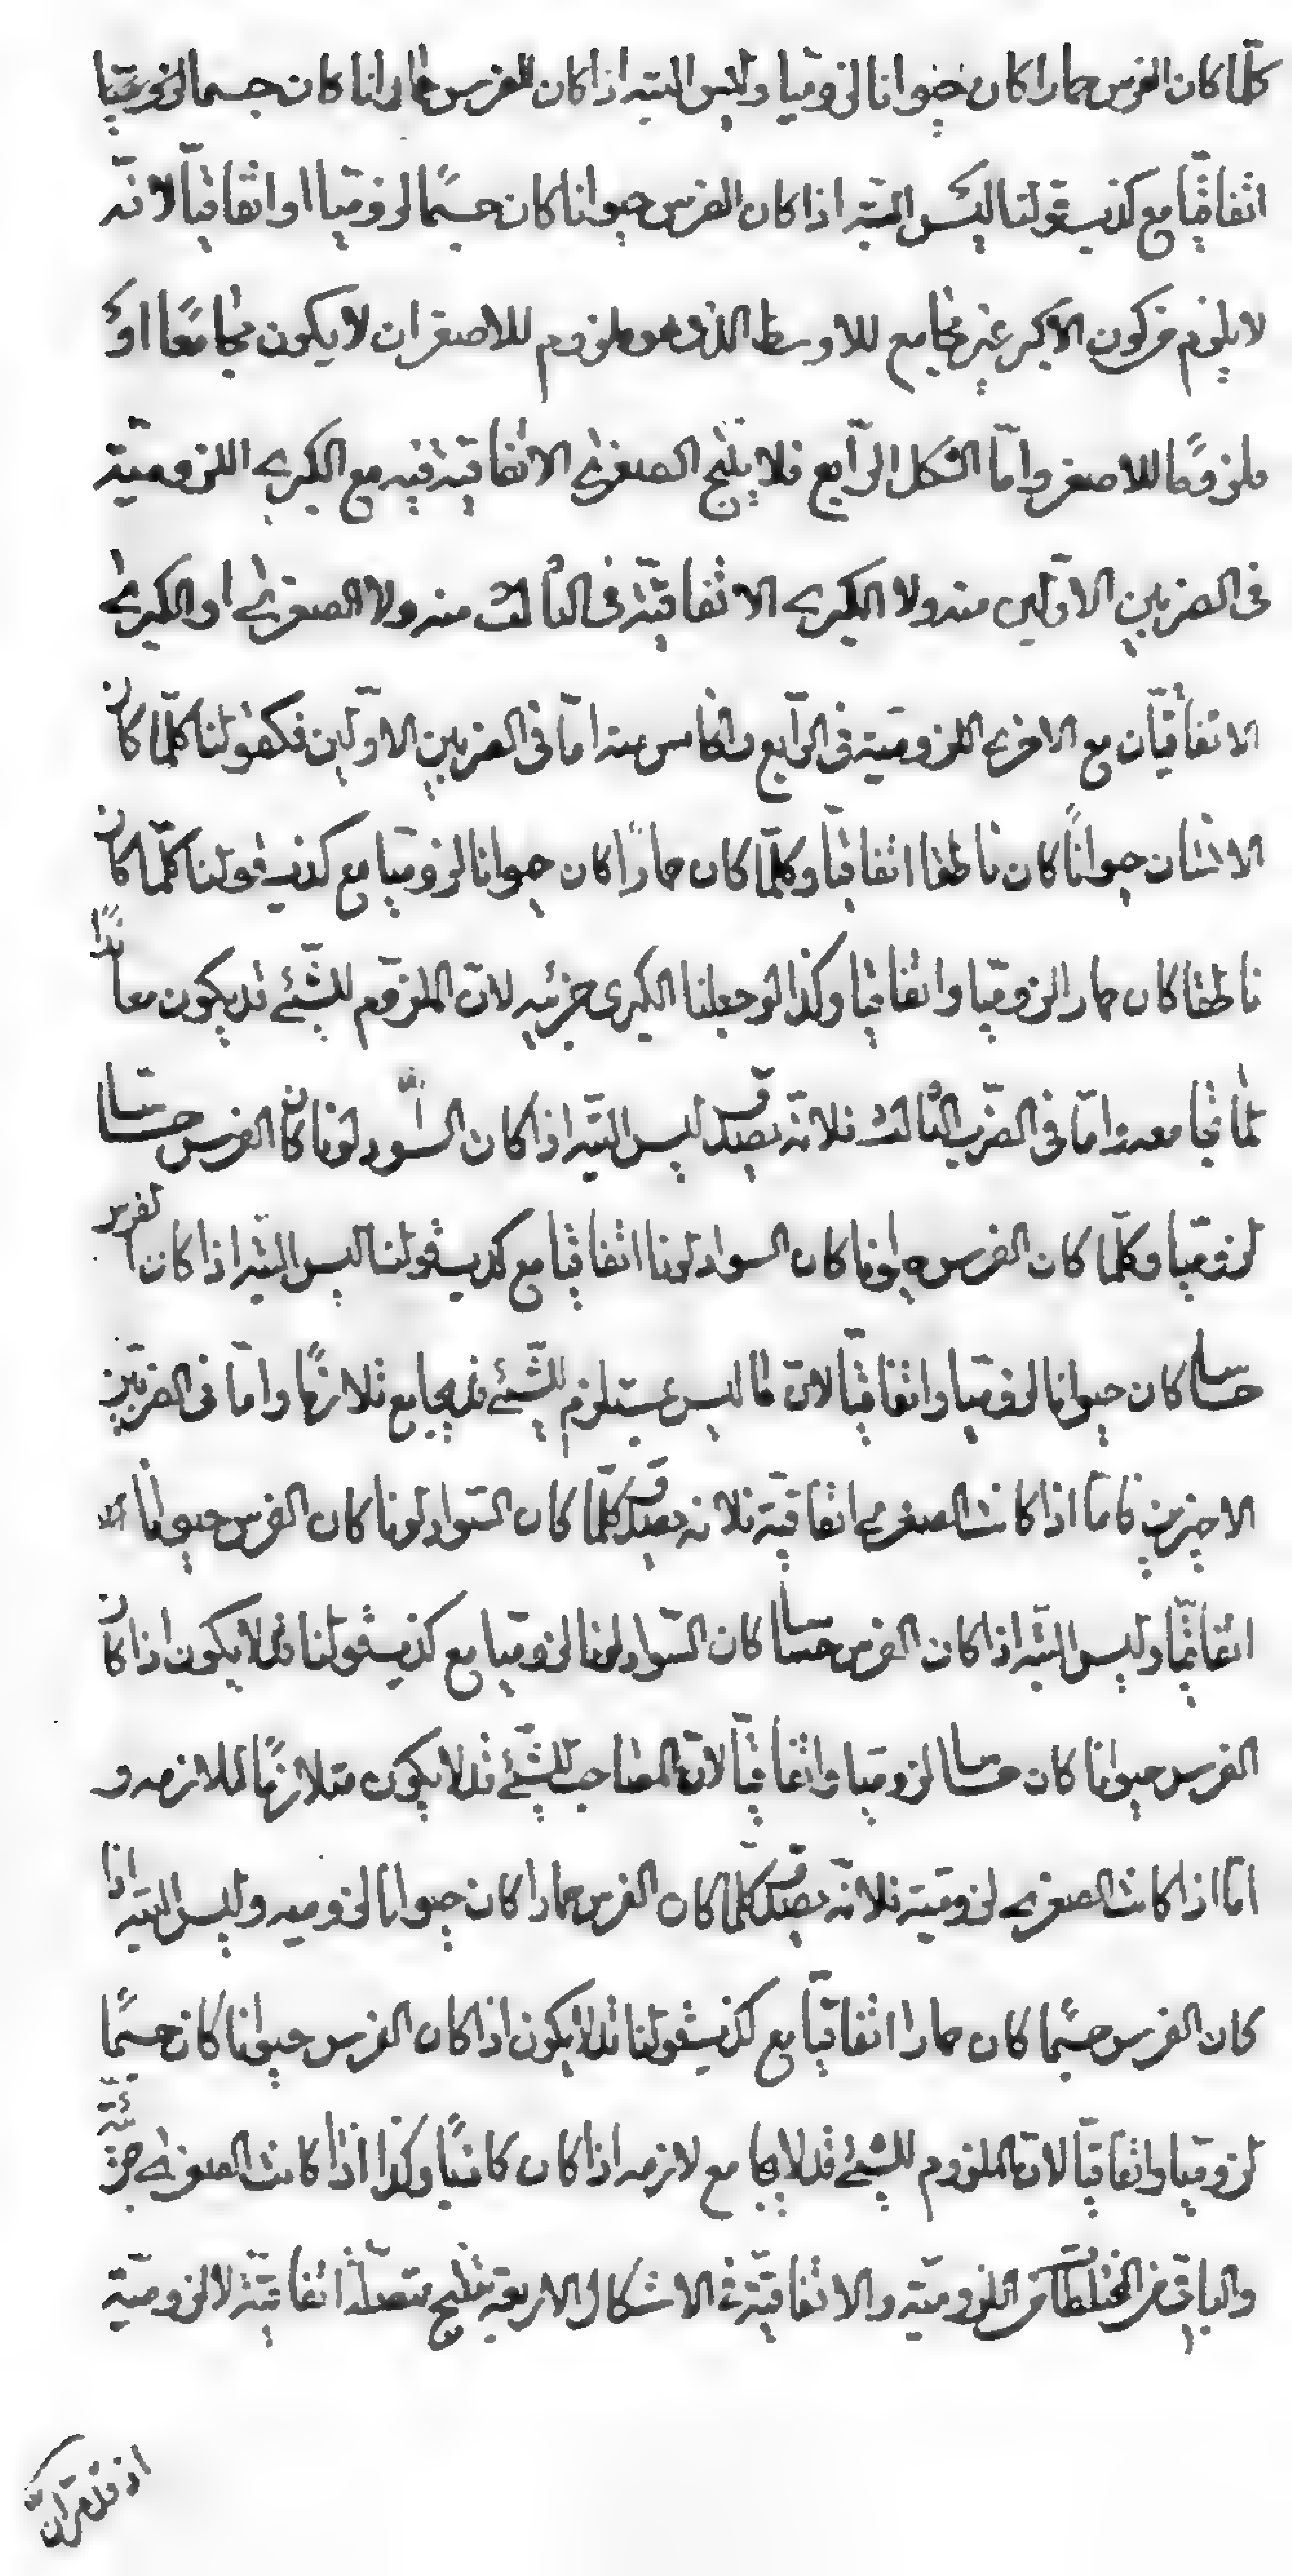 كلّما كان الفرس حمارا كان حيوانا لزوميّا وليس البتّه اذا كان الفرس حمارا كان جسما لزوميّا
اتّفاقيّا مع كذب قولنا ليس البتّه اذا كان الفرس حيوانا كان جسمًا لزوميّا او اتفاقيّا لانّه
لا يلزم من كون الاكبر غير مجامع للاوسط الذى هو ملزوم للاصغر ان لا يكون مجامعًا او
ملزومًا للاصغر وامّا الشكل الرّابع فلا ينتج الصغرى الاتفاقيّة فيه مع الكبرى اللزوميّة
فى الضربين الاوّلين منه ولا الكبرى الاتفاقيّة فى الثالث منه ولا الصغرى او الكبرى
الاتفاقيّتان مع الاخرى اللزوميّة فى الرّابع والخامس منه امّا فى الضربين الاوّلين فكقولنا كلّما كان
الانسان حيوانًا كان ناطقا اتفاقيّا وكلّما كان حمارًا كان حيوانا لزوميّا مع كذب قولنا كلّما كان
ناطقا كان حمارا لزوميّا واتفاقيّا وكذا لو جعلنا الكبرى جزئيه لانّ الملزوم للشّئ قد يكون معاندًا
لما يجامعه وامّا فى الضّرب الثالث فلانّه يصدق ليس البتّه اذا كان السّواد لونا كان الفرس حسّاسا
لزوميّا وكلّما كان الفرس حيوانا كان السواد لونا اتفاقيّا مع كذب قولنا ليس البتّه اذا كان الفرس
حساسا كان حيوانا لزوميّا واتفاقيّا لانّ ما ليس بمستلزم للشّئ قد يجامع ملازمًا وامّا فى الضربين
الاخيرين فامّا اذا كانت الصغرى اتفاقيّة فلانه يصدق كلّما كان السّواد لونا كان الفرس حيوانا
اتفاقيّا وليس البتّه اذا كان الفرس حسّاسا كان السّواد لونا لزوميّا مع كذب قولنا قد لا يكون اذا كان
الفرس حيوانا كان حساسا لزوميّا واتفاقيّا لانّ المصاحب للشّئ قد لا يكون متلازمًا لملازمه و
امّا اذا كانت الصغرى لزوميّة فلانّه يصدق كلّما كان الفرس حمارا كان حيوانا لزوميه وليس البتّه اذا
كان الفرس جسمًا كان حمارا اتفاقيّا مع كذب قولنا قد لا يكون اذا كان الفرس حيوانا كان جسمًا
لزوميّا واتفاقيّا لانّ الملزوم للشّئ قد لا يجامع لازمه اذا كان كاذبًا وكذا اذا كانت الصغرى جزئيّة
والباقى من المختلطات من اللزوميّة والاتفاقيّة فى الاشكال الاربعة ينتج متصلة اتفاقيّة لا لزوميّة